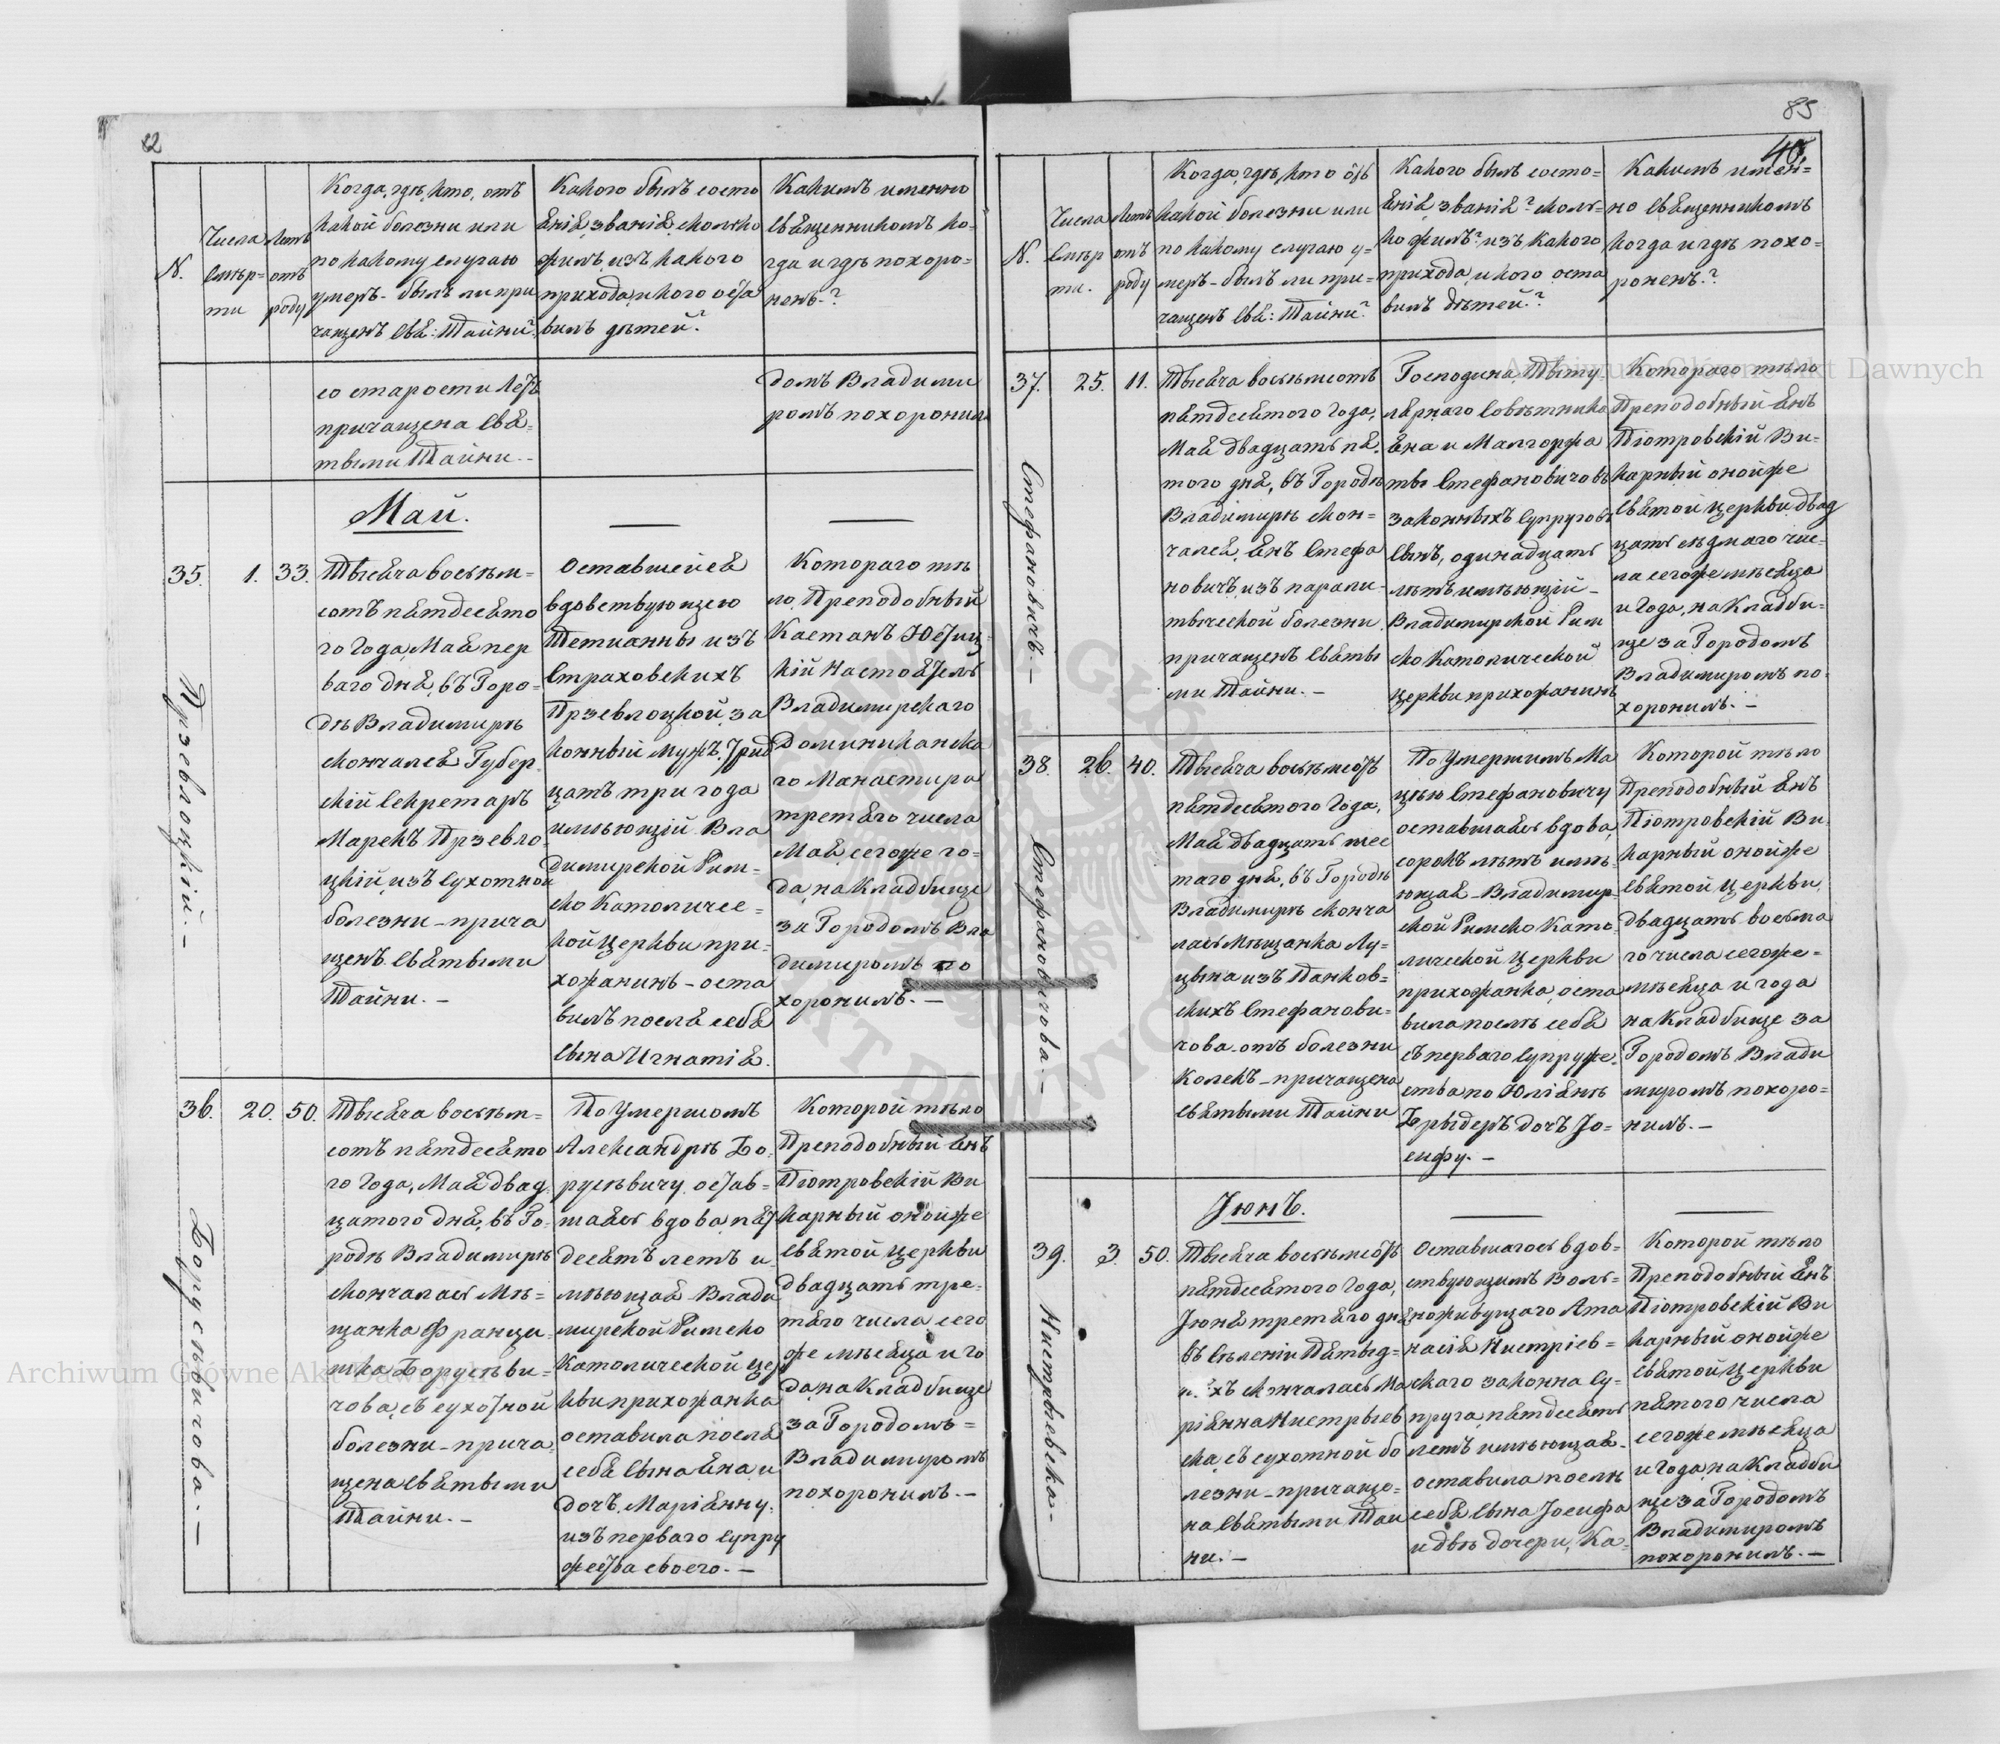 82
N.
Числа
смър-
ти
Лѣтъ
отъ
роду
Когда, гдѣ, кто, отъ
какой болезни или
по какому случаю
умеръ - былъ ли при
чащенъ Свя: Тайни?
Какого былъ состо
янія, званія, сколько
жилъ, изъ какого
прихода, и кого оста
вилъ дѣтей?
Какимъ именно
Священникомъ ко-
гда и гдѣ похоро-
ненъ?
со старости лѣтъ
причащена Свя-
тыми Тайни. -
домъ Владими
ромъ похоронилъ
Май.
35.
1.
33.
Прзевлоцкій. -
Тысяча восьмь-
сотъ пятдесято
го Года, Мая пер
ваго дня, въ Горо-
дѣ Владимирѣ
скончался Губер-
скій Секретаръ
Марекъ Прзевло-
цкій, изъ сухотной
болезни - прича
щенъ Святыми
Тайни. -
Оставшейся
вдовствующею
Тетианны изъ
Страховскихъ
Прзевлоцкой, за
конный мужъ, трид
цать три года
имѣющій. Вла
димирской Рим-
ско Католичес-
кой Церкви при-
хожанинъ - оста
вилъ посля себя
Сына Игнатія.
Котораго тѣ
ло, Преподобный
Каетанъ
кій Настоятель
Владимирскаго
Доминиканска
го Манастира
третяго числа
Мая, сегоже го-
да, на Кладбище
за Городомъ Вла
димиромъ по
хоронилъ. -
36.
20.
50.
Борусѣвичова. -
Тысяча восьмь-
сотъ пятдесято
го Года, Мая двад
цатого дня, въ Го-
родѣ Владимирѣ
скончалась Мѣ-
щанка Францы-
шка Борусѣви-
чова, съ сухотной
болезни - прича
щена Святыми
Тайни. -
По Умершомъ
Александрѣ Бо-
русѣвичу остав-
шаясь вдова, пят
десятъ летъ и-
мѣющая - Влади
мирской Римско
Католической Цер
кви прихожанка
оставила посля
себя Сына Яна, и
дочъ Маріянну,
изъ перваго супру
жества своего. -
Которой тѣло
Преподобный Янъ
Піотровскій Ви
карный онойже
Святой Церкви
двадцать тре-
тяго числа сего
же мѣсяца и го
да, на Кладбище
за Городомъ =
Владимиромъ
похоронилъ. -
85
40.
N.
Числа
Смър
ти.
Летъ
отъ
роду
Когда, гдѣ, кто отъ
какой болезни или
по какому случаю у-
меръ - былъ ли при-
чащенъ Свя: Тайни?
Какого былъ состо-
янія, званія? сколь-
ко жилъ? изъ какого
прихода, и кого оста
вилъ дѣтей?
Какимъ имен-
но Священникомъ
когда и гдѣ похо-
роненъ?
37.
25.
11.
Стефановичъ. -
Тысяча восьмьсотъ
пятдесятого Года,
Мая двадцать пя-
того дня, въ Городѣ
Владимирѣ скон-
чался, Янъ Стефа
новичъ, изъ парали-
тыческой болезни
причащенъ Святы
ми Тайни. -
Господина Тыту-
лярнаго Совѣтника
Яна и Малгоржа
ты Стефановичовъ
законныхъ Супруговъ
Сынъ, одинадцать
лѣтъ имѣющій -
Владимирской Рим
ско Католической
Церкви прихожанинъ
Котораго тѣло
Преподобный Янъ
Піотровскій Ви-
карный онойже
Святой Церкви двад
цать седмаго чис-
ла сегоже мѣсяца
и Года, на Кладби-
ще за Городомъ
Владимиромъ по-
хоронилъ. -
38.
26.
40.
Стефановичова. -
Тысяча восьмьсотъ
пятдесятого Года,
Мая двадцать шес
таго дня, въ Городѣ
Владимирѣ сконча
лась Мѣщанка Лу-
цына изъ Панков-
скихъ Стефанови-
чова отъ болезни
Колекъ - причащена
Святыми Тайни
По Умершимъ Ма
цѣю Стефановичу
оставшаясь вдова,
сорокъ лѣтъ имѣ-
ющая - Владимир-
ской Римско Като-
лической Церкви
прихожанка, оста
вила послѣ себя
съ перваго Супруже-
ства по Юліянѣ
Брыдеръ дочъ Іо-
сифу. -
Которой тѣло
Преподобный Янъ
Піотровскій Ви-
карный онойже
Святой Церкви,
двадцать восьма
го числа сегоже -
мѣсяца и года
на Кладбище за
Городомъ Влади
миромъ похоро-
нилъ. -
Іюнъ.
39.
3.
50.
Тысяча восьмьсотъ
пятдесятого Года,
Іюня третяго дня
въ Сѣленіи Пятыд-
скончалась Ма
ріянна Нистрыев
ска, съ сухотной бо
лезни - причаще-
на Святыми Тай
ни. -
Оставшагось вдов-
ствующимъ Воль-
ноживущаго Ата
насія Нистріев-
скаго законна Су-
пруга, пятдесятъ
летъ имѣющая -
оставила послѣ
себя Сына Іосифа
и двѣ дочери, Ка-
Которой тѣло
Преподобный Янъ
Піотровскій Ви
карный онойже
Святой Церкви
пятого числа
сегоже мѣсяца
и Года, на Кладби
ще за Городомъ
Владимиромъ
похоронилъ. -
Archiwum Główne Akt Dawnych
Archiwum Główne Akt Dawnych